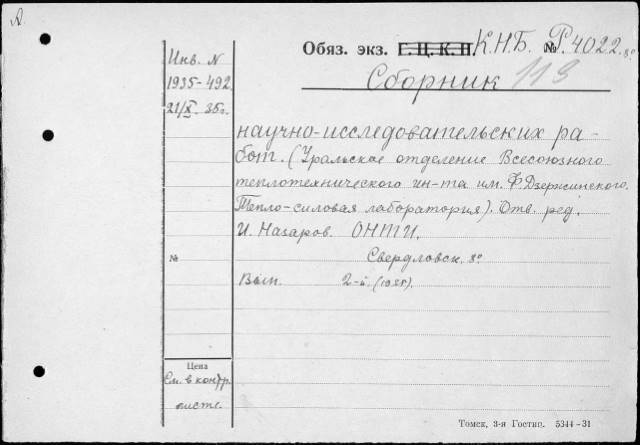 А.
Обяз. экз. Г.Ц.К.П. К.Н.Б. № Р.4022.8°
Инв. N
1935-492
21/X. 35г.
Сборник 113
научно-исследовательских ра-
бот. (Уральское отделение Всесоюзного
теплотехнического ин-та им. Ф. Дзержинского.
Тепло-силовая лаборатория). Отв. ред.
И. Назаров. ОНТИ.
Свердловск. 8°
№
Вып. 2-й.
Цена
См. в контр.
листе.
Томск, 3-я Гостип. 5344-31